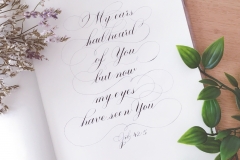 My ears
had heard
of You
but now
my eyes
have seen You
Job 42:5